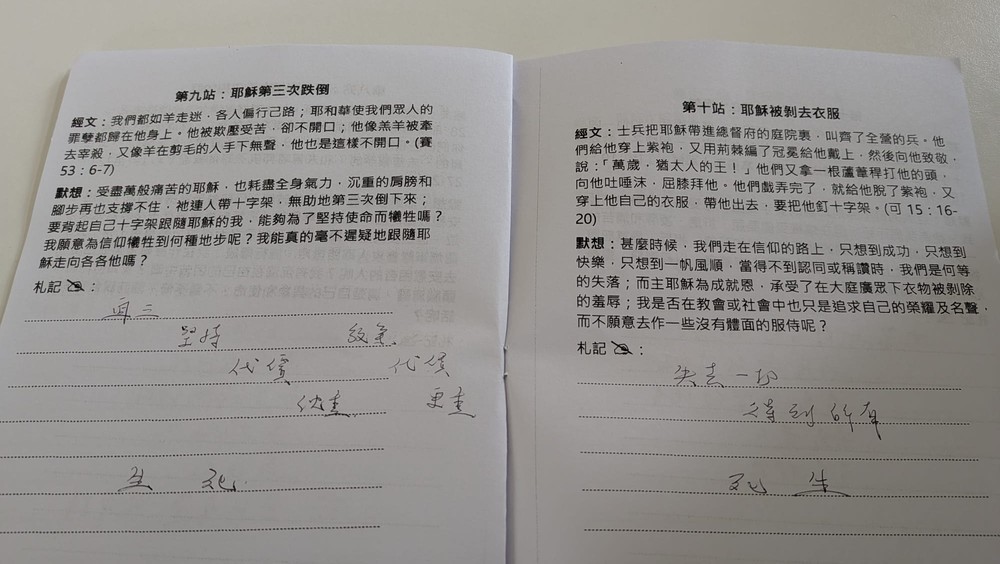 第九站：耶穌第三次跌倒
經文：我們都如羊走迷，各人偏行己路；耶和華使我們眾人的
罪孽都歸在他身上。他被欺壓受苦，卻不開口；他像羔羊被牽
去宰殺，又像羊在剪毛的人手下無聲，他也是這樣不開口。(賽
53：6-7)
默想：受盡萬般痛苦的耶穌，也耗盡全身氣力，沉重的肩膀和
腳步再也支撐不住，祂連人帶十字架，無助地第三次倒下來；
要背起自己十字架跟隨耶穌的我，能夠為了堅持使命而犧牲嗎？
我願意為信仰犧牲到何種地步呢？我能真的毫不遲疑地跟隨耶
穌走向各各他嗎？
札記：
再三
堅持 放棄
代價 代價
更重
生 死
第十站：耶穌被剝去衣服
經文：士兵把耶穌帶進總督府的庭院裏，叫齊了全營的兵。他
們給他穿上紫袍，又用荊棘編了冠冕給他戴上，然後向他致敬，
說：「萬歲，猶太人的王！」他們又拿一根蘆葦稈打他的頭，
向他吐唾沫，屈膝拜他。他們戲弄完了，就給他脫了紫袍，又
穿上他自己的衣服，帶他出去，要把他釘十字架。(可 15：16-
20)
默想：甚麼時候，我們走在信仰的路上，只想到成功，只想到
快樂，只想到一帆風順，當得不到認同或稱讚時，我們是何等
的失落；而主耶穌為成就恩，承受了在大庭廣眾下衣物被剝除
的羞辱；我是否在教會或社會中也只是追求自己的榮耀及名聲，
而不願意去作一些沒有體面的服侍呢？
札記：
失去一切
得到所有
死 生